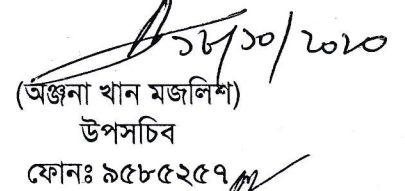 ১৮/১০/২০২০
(অঞ্জনা খান মজলিশ)
উপসচিব
ফোনঃ ৯৫৮৫২৫৭